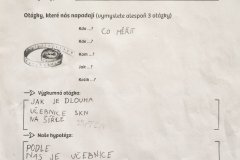 Otázky, které nás napadají (vymyslete alespoň 3 otázky)
Kdo ...?
CO MĚŘIT
Kde ...?
Kdy ...?
Jak ...?
Kolik ...?
Výzkumná otázka:
JAK JE DLOUHÁ
UČEBNICE SKN
NA ŠÍŘCE
Naše hypotéza:
PODLE
NÁS JE UČEBNICE